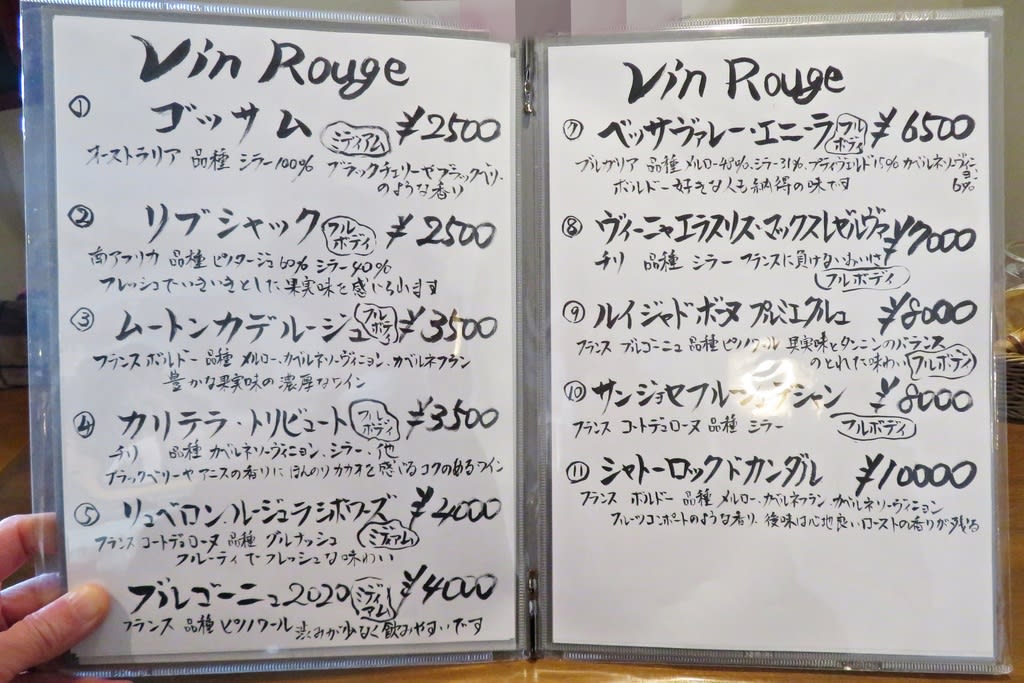 Vin Rouge
① ゴッサム ミディアム ¥2500
オーストラリア 品種 シラー100% ブラックチェリーやブラックベリー
のような香り
② リブシャック フルボディ ¥2500
南アフリカ 品種 ピノタージュ60% シラー40%
フレッシュでいきいきとした果実味を感じられます
③ ムートンカデルージュ フルボディ ¥3500
フランス ボルドー 品種 メルロー、カベルネソーヴィニョン、カベルネフラン
豊かな果実味の濃厚なワイン
④ カリテラ・トリビュート フルボディ ¥3500
チリ 品種 カベルネソーヴィニョン、シラー、他
ブラックベリーやアニスの香りにほんのりカカオを感じるコクのあるワイン
⑤ リュベロン、ルージュラシボワーズ ¥4000
フランス コートデュローヌ 品種 グルナッシュ ミディアム
フルーティでフレッシュな味わい
ブルゴーニュ2020 ミディアム ¥4000
フランス 品種 ピノノワール 渋みが少なく飲みやすいです
Vin Rouge
⑦ ベッサヴァレー・エニーラ フルボディ ¥6500
ブルガリア 品種 メルロー48%、シラー31%、プティヴェルド15% カベルネソーヴィニヨン
6%
ボルドー好きな人も納得の味です
⑧ ヴィーニャエラスリス・マックスレゼルヴァ ¥7000
チリ 品種 シラー フランスに負けない
フルボディ
⑨ ルイジャドボーヌ プルミエクリュ ¥8000
フランス ブルゴーニュ 品種 ピノノワール 果実味とタンニンのバランス
のとれた味わい フルボディ
⑩ サンジョセフ ¥8000
フランス コートデュローヌ 品種 シラー フルボディ
⑪ シャトーロックドカンダル ¥10000
フランス ボルドー 品種 メルロー、カベルネフラン、カベルネソーヴィニョン
フルーツコンポートのような香り、後味は心地良いローストの香りが残る